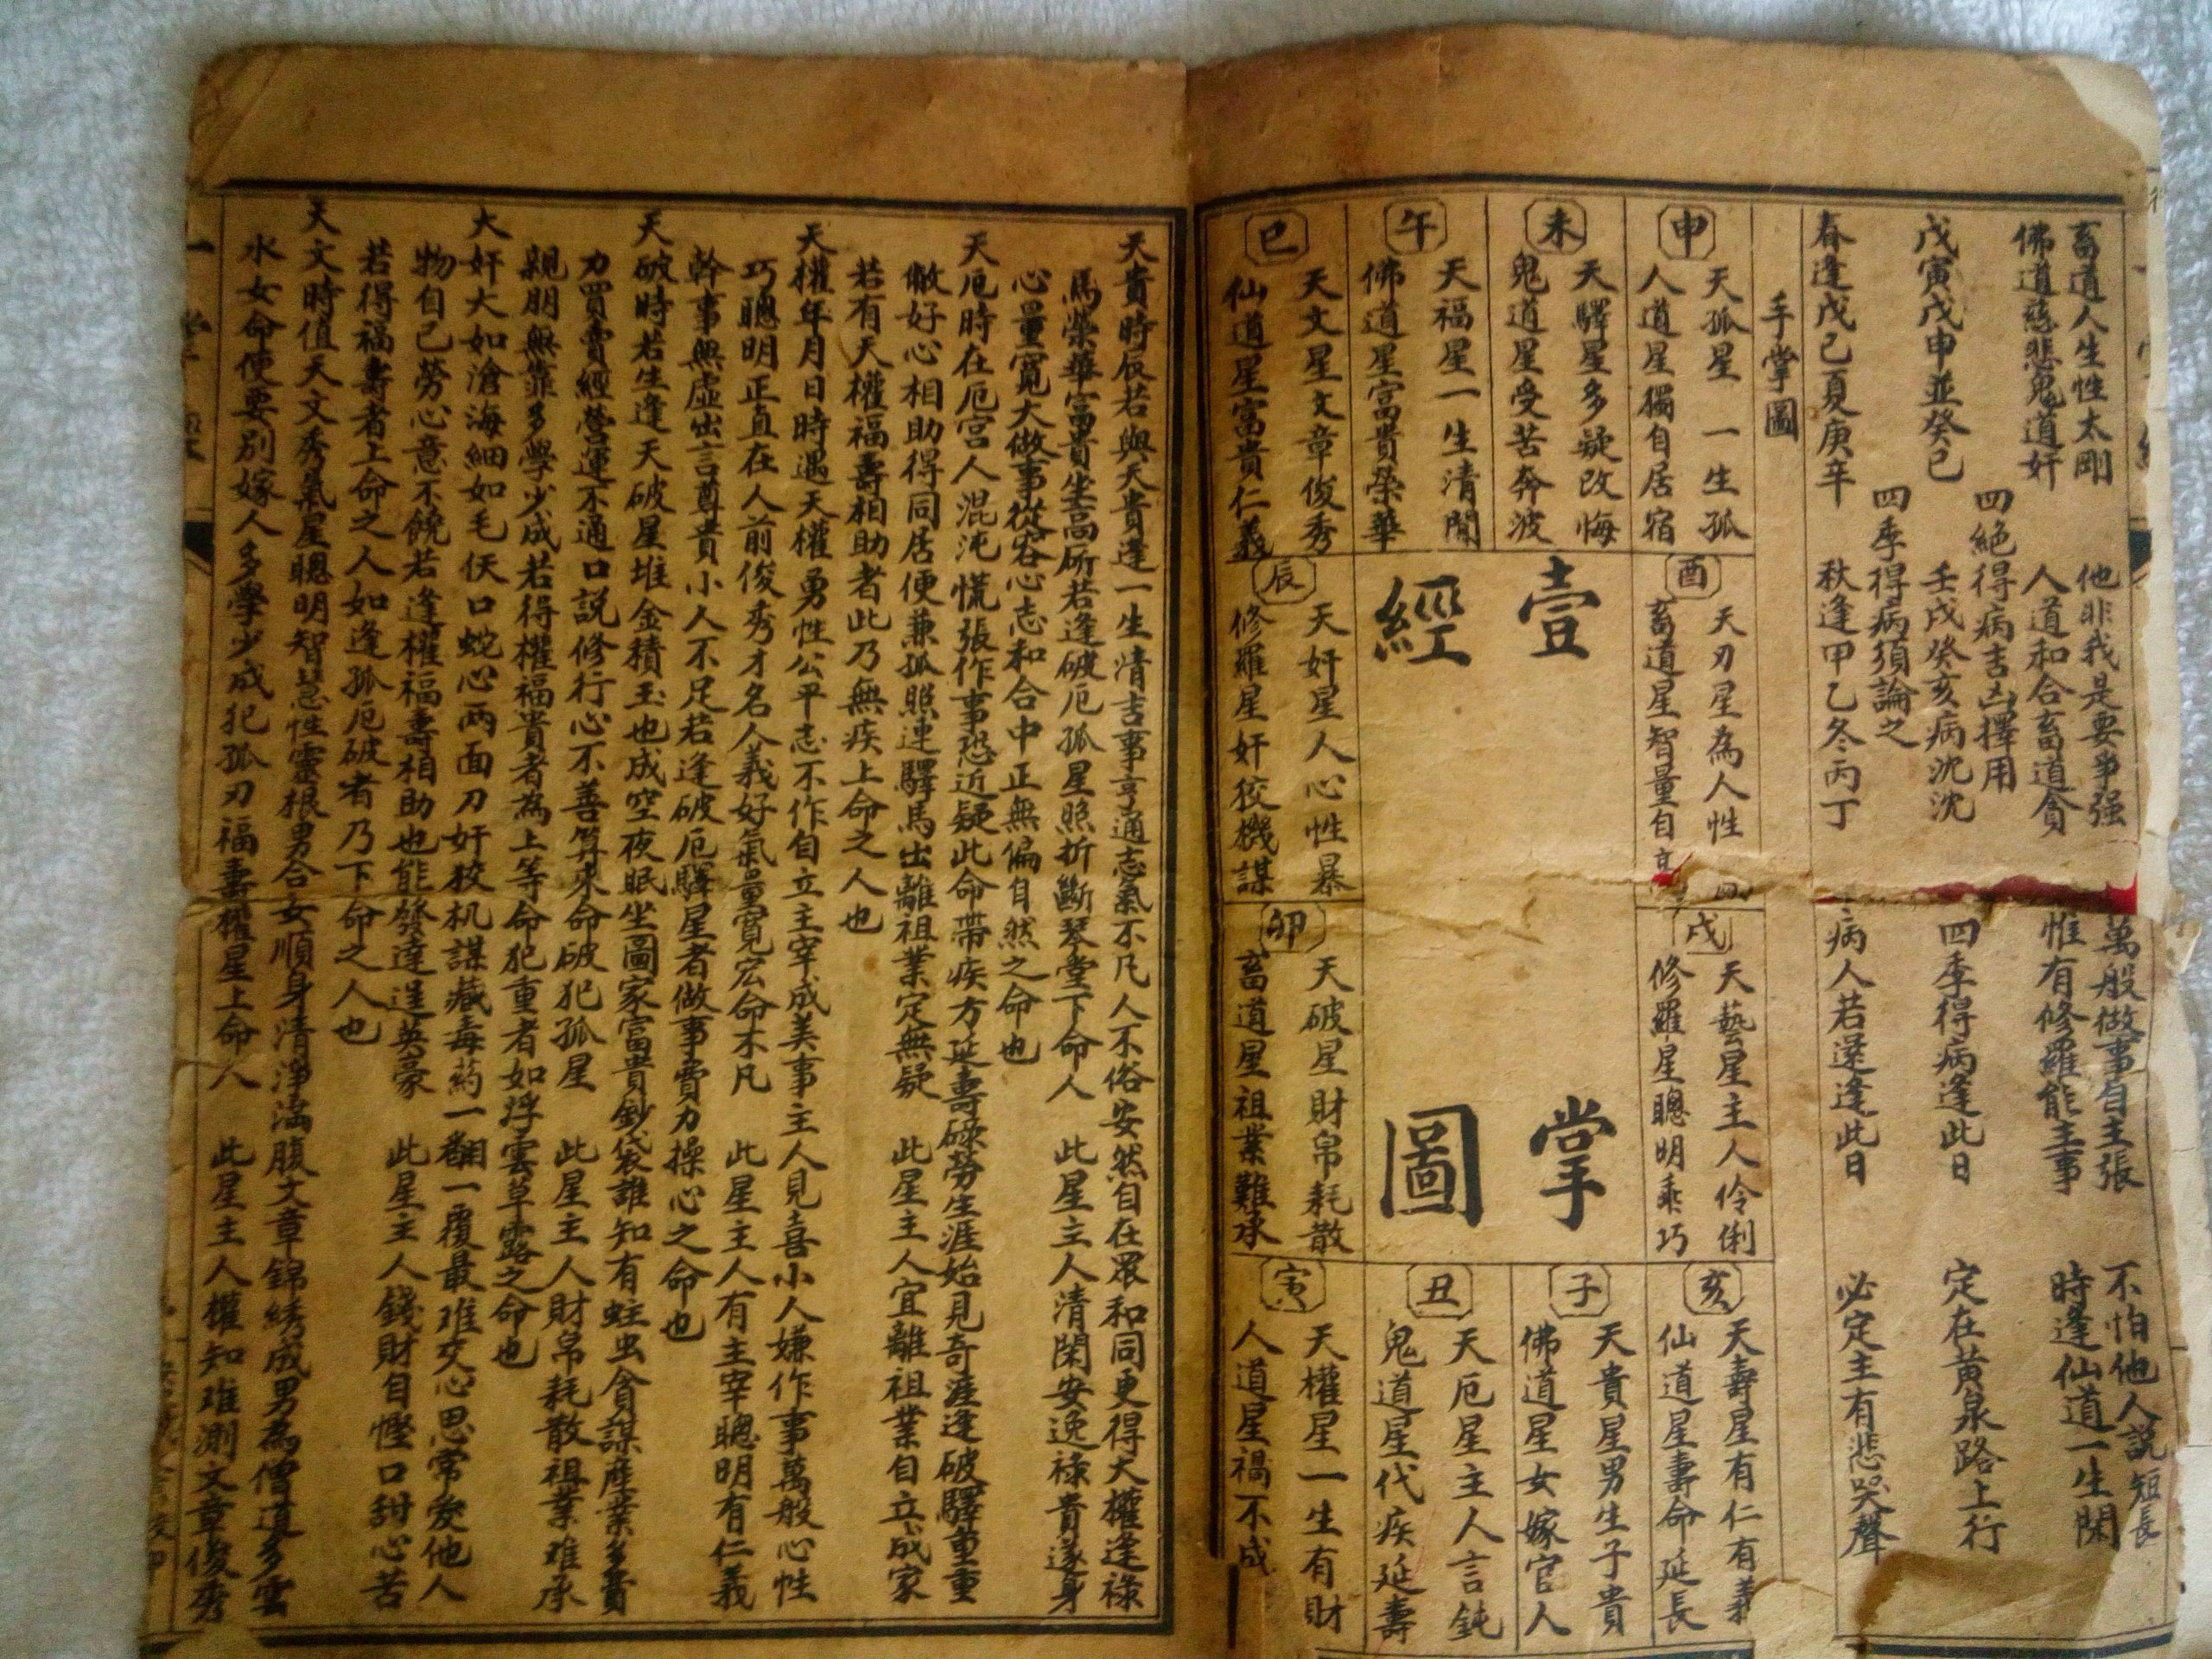 畜道人生性太剛 他非我是要爭强 萬般做事自主張 不怕他人説短長
佛道慈悲鬼道奸 人道和合畜道貪 惟有修羅能主事 時逢仙道一生閑
四絕得病吉凶擇用
戊寅戊申並癸巳 壬戌癸亥病沈沈 四季得病逢此日 定在黃泉路上行
四季得病須論之
春逢戊己夏庚辛 秋逢甲乙冬丙丁 病人若還逢此日 必定主有悲哭聲
手掌圖
申
天孤星一生孤
人道星獨自居宿
未
天驛星多疑改悔
鬼道星受苦奔波
午
天福星一生清閒
佛道星富貴榮華
巳
天文星文章俊秀
仙道星富貴仁義
酉
天刃星為人性
畜道星智量自
辰
天奸星人心性暴
修羅星奸狡機謀
戌
天藝星主人伶俐
修羅星聰明乖巧
卯
天破星財帛耗散
畜道星祖業難承
壹掌
經圖
亥
天壽星有仁有義
仙道星壽命延長
子
天貴星男生子貴
佛道星女嫁官人
丑
天厄星主人言鈍
鬼道星代疾延壽
寅
天權星一生有財
人道星禍不成
天貴時辰若與天貴逢一生清吉事亨通志氣不凡人不俗安然自在眾和同更得大權逢祿
馬榮華富貴坐高所若逢破厄孤星照折斷琴堂下命人 此星主人清閑安逸祿貴遂身
心量寬大做事從容心志和合中正無偏自然之命也
天厄時在厄宮人混沌慌張作事恐近疑此命帶疾方延壽碌勞生涯始見奇涯逢破驛重重
敝好心相助得同居便兼孤照連驛馬出離祖業定無疑 此星主人宜離祖業自立成家
若有天權福壽相助者此乃無疾上命之人也
天權年月日時遇天權勇性公平志不作自立主宰成美事主人見喜小人嫌作事萬般心性
巧聰明正直在人前俊秀才名人義好氣量寬宏命不凡 此星主人有主宰聰明有仁義
幹事無虛出言尊貴小人不足若逢破厄驛星者做事費力操心之命也
天破時若生逢天破星堆金積玉也成空夜眠坐圖家富貴鈔袋誰知有蛀虫貪謀產業多費
力買賣經營運不通口説修行心不善算來命破犯孤星 此星主人財帛耗散祖業难承
親朋無靠多學少成若得權福貴者為上等命犯重者如浮雲草露之命也
大奸大如滄海細如毛佛口蛇心兩面刀奸狡机謀藏毒药一翻一覆最难交心思常爱他人
物自己勞心意不饒若逢權福壽相助也能發達逞英豪 此星主人錢財自慳口甜心苦
若得福壽者上命之人如逢孤厄破者乃下命之人也
天文時值天文秀氣星聰明智慧性靈根男合女順身清淨滿腹文章錦綉成男為僧道多雲
水女命使要別嫁人多學少成犯孤刃福壽權星上命人 此星主人權知难測文章俊秀